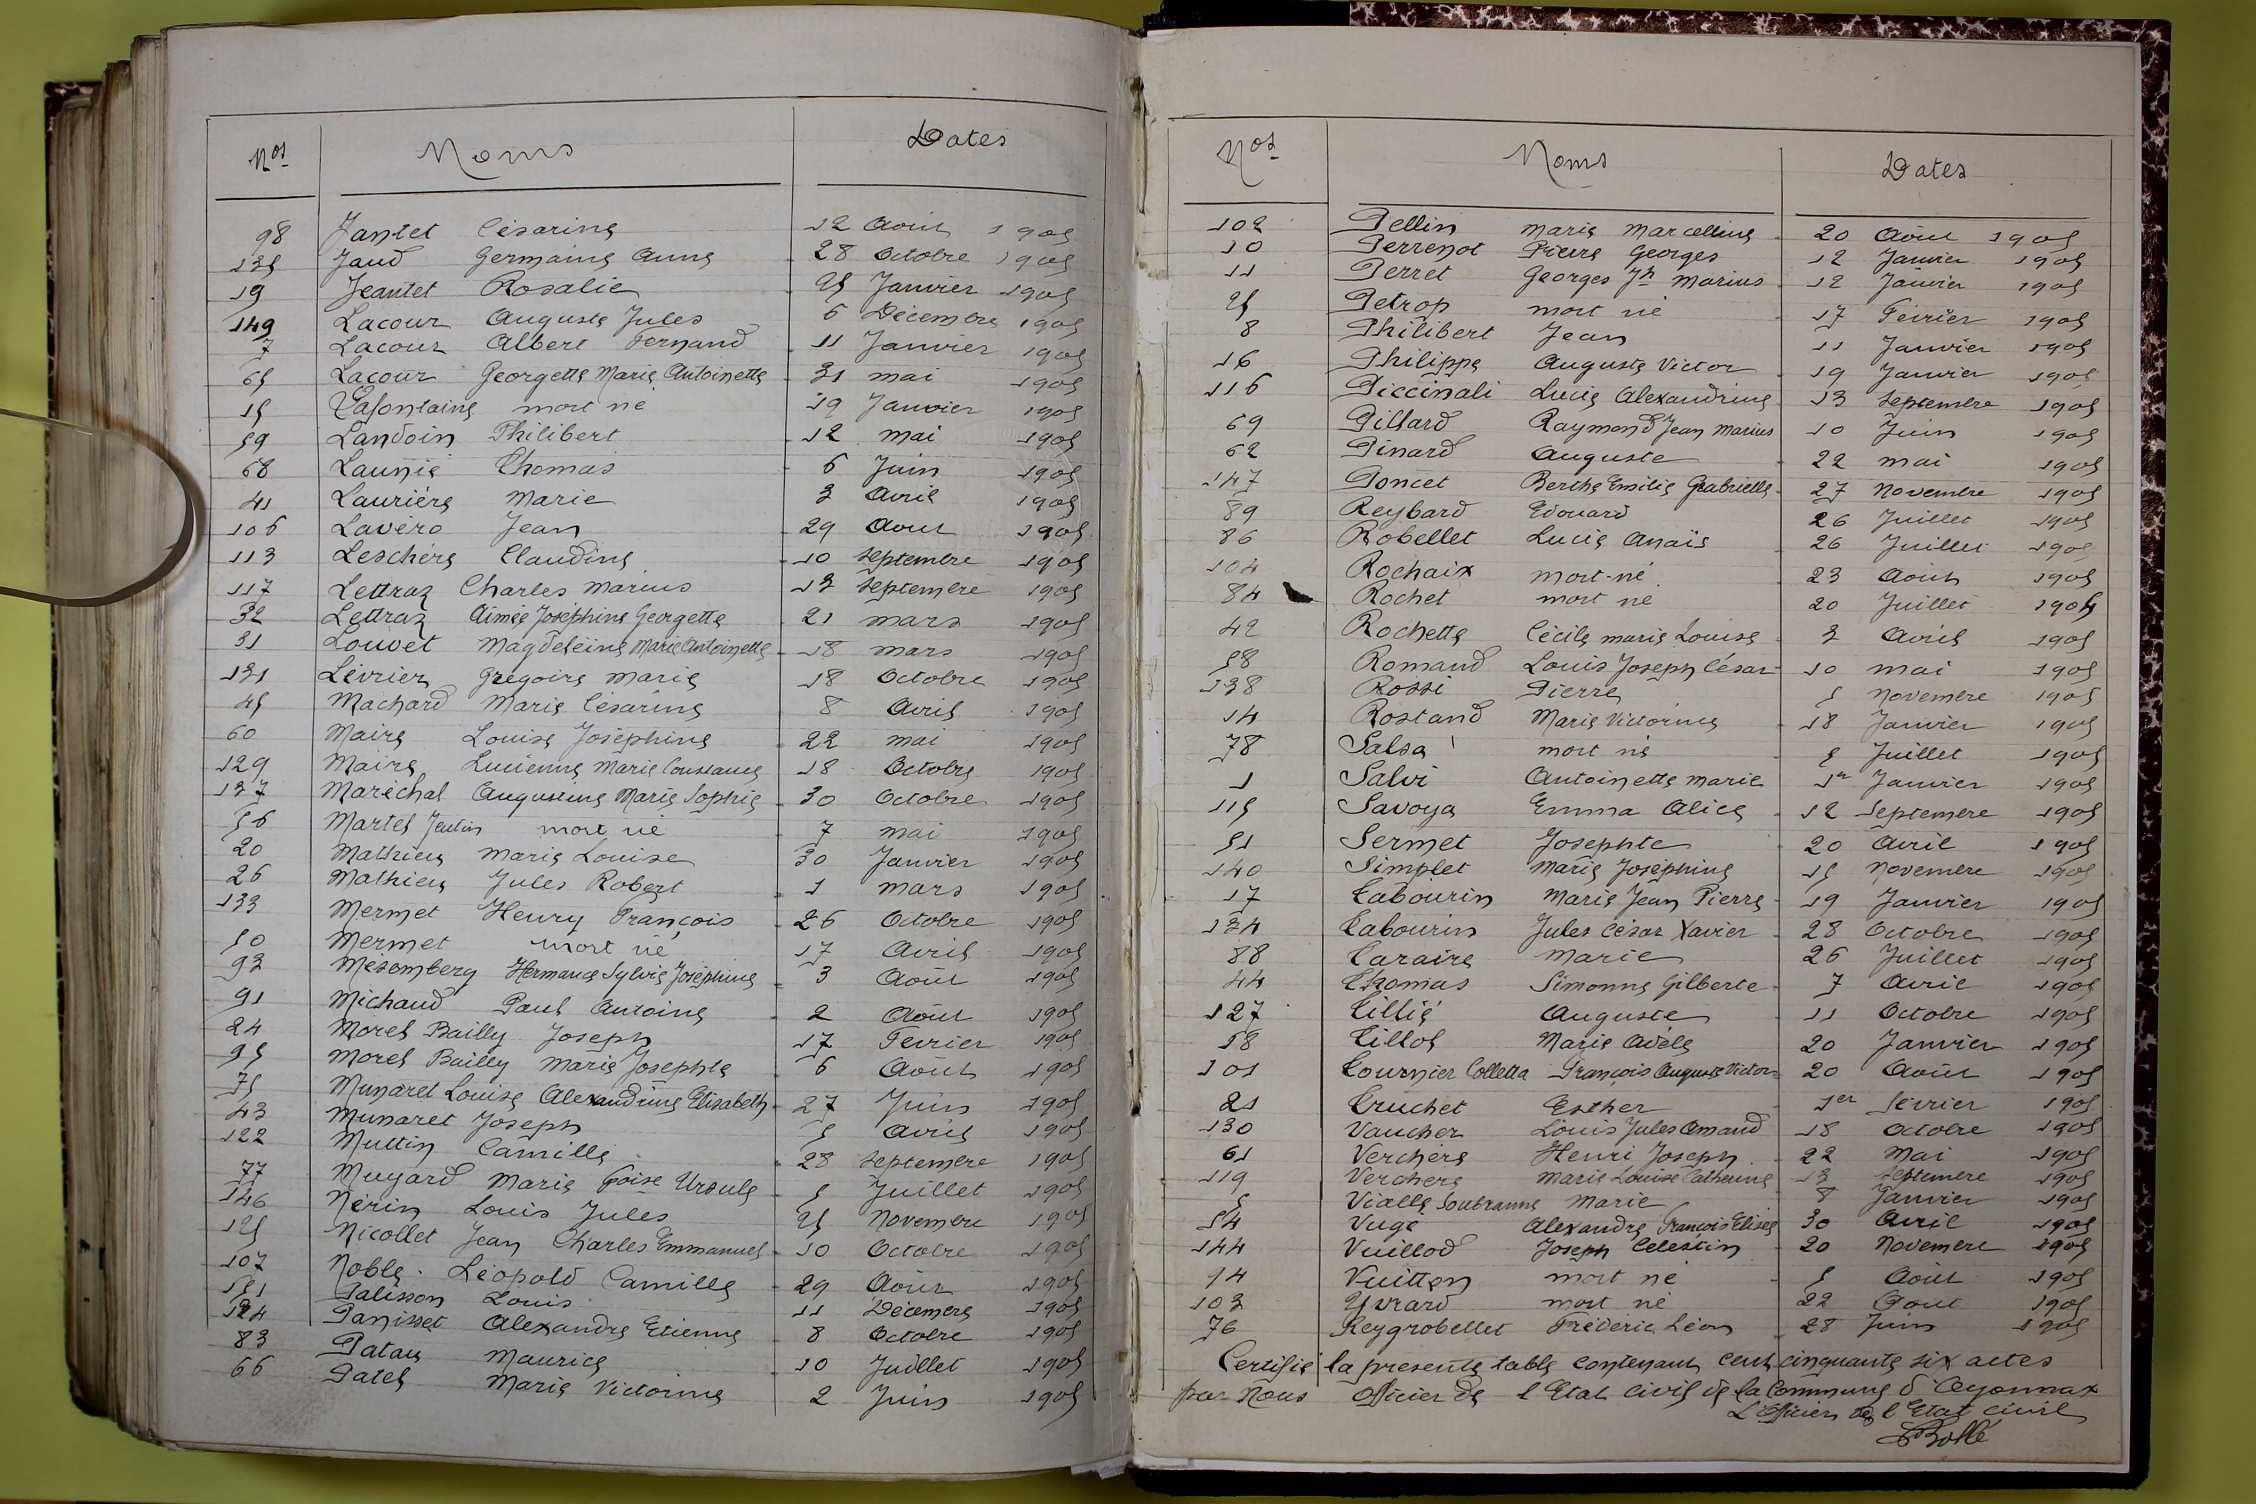 Nos Noms Dates
98 Jantet Césarine 12 Août 1905
135 Jaud Germaine Anna 28 Octobre 1905
19 Jeantet Rosalie 25 Janvier 1905
149 Lacour Auguste Jules 6 Décembre 1905
7 Lacour Albert Fernand 11 Janvier 1905
65 Lacour Georgette Marie Antoinette 31 mai 1905
15 Lafontaine mort né 19 Janvier 1905
59 Landoin Philibert 12 mai 1905
68 Launié Thomas 6 Juin 1905
41 Laurière Marie 3 Avril 1905
106 Lavéro Jean 29 Août 1905
113 Leschère Claudine 10 Septembre 1905
117 Lettraz Charles Marius 13 Septembre 1905
32 Lettraz Aimée Joséphine Georgette 21 mars 1905
31 Louvet Magdeleine Marie Antoinette 18 mars 1905
131 Lévrier Grégoire Marie 18 Octobre 1905
45 Machard Marie Césarine 8 Avril 1905
60 Maire Louise Joséphine 22 mai 1905
129 Maire Lucienne Marie Constance 18 Octobre 1905
137 Maréchal Augustine Marie Sophie 30 Octobre 1905
56 Martel mort né 7 mai 1905
20 Mathieu Marie Louise 30 Janvier 1905
26 Mathieu Jules Robert 1 mars 1905
133 Mermet Henry François 26 Octobre 1905
50 Mermet mort né 17 Avril 1905
93 Mésemberg Hermance Sylvie Joséphine 3 Août 1905
91 Michaud Paul Antoine 2 Août 1905
24 Morel Bailly Joseph 17 Fevrier 1905
95 Morel Bailly Marie Josephte 6 Août 1905
75 Munaret Louise Alexandrine Elisabeth 27 Juin 1905
43 Munaret Joseph 5 Avril 1905
122 Muttin Camille 28 Septembre 1905
77 Muyard Marie Foise Ursule 5 Juillet 1905
146 Nérin Louis Jules 25 Novembre 1905
125 Nicollet Jean Charles Emmanuel 10 Octobre 1905
107 Noble Léopold Camille 29 Août 1905
151 Palisson Louis 11 Décembre 1905
124 Panisset Alexandre Etienne 8 Octobre 1905
83 Patau Maurice 10 Juillet 1905
66 Patel Marie Victorine 2 Juin 1905
Nos Noms Dates
102 Pellin Marie Marcelline 20 Août 1905
10 Perrenot Pierre Georges 12 Janvier 1905
11 Perret Georges Jh Marius 12 Janvier 1905
25 Petrop mort né 17 Février 1905
8 Philibert Jean 11 Janvier 1905
16 Philippe Auguste Victor 19 Janvier 1905
116 Piccinali Lucie Alexandrine 13 Septembre 1905
69 Pillard Raymond Jean Marius 10 Juin 1905
62 Pinard Auguste 22 mai 1905
147 Poncet Berthe Emilie Gabrielle 27 Novembre 1905
89 Reybard Edouard 26 Juillet 1905
86 Robellet Lucie Anaïs 26 Juillet 1905
104 Rochaix mort-né 23 Août 1905
84 Rochet mort né 20 Juillet 1905
42 Rochette Cécile Marie Louise 3 Avril 1905
58 Romand Louis Joseph César 10 mai 1905
138 Rossi Pierre 5 Novembre 1905
14 Rostand Marie Victorine 18 Janvier 1905
78 Salsa mort né 5 Juillet 1905
1 Salvi Antoinette Marie 1er Janvier 1905
115 Savoye Emma Alice 12 Septembre 1905
51 Sermet Josephte 20 Avril 1905
140 Simplet Marie Joséphine 15 Novembre 1905
17 Tabourin Marie Jean Pierre 19 Janvier 1905
134 Tabourin Jules César Xavier 28 Octobre 1905
88 Taraire Marie 26 Juillet 1905
44 Thomas Simonne Gilberte 7 Avril 1905
127 Tillié Auguste 11 Octobre 1905
18 Tillol Marie Adèle 20 Janvier 1905
101 Tournier Colletta François Auguste Victor 20 Août 1905
21 Truchet Esther 1er Février 1905
130 Vaucher Louis Jules Amand 18 Octobre 1905
61 Verchère Henri Joseph 22 Mai 1905
119 Verchère Marie Louise Catherine 13 Septembre 1905
5 Vialle Soubranne Marie 8 Janvier 1905
54 Vuge Alexandre François Elisée 30 Avril 1905
144 Vuillod Joseph Célestin 20 Novembre 1905
94 Vuitton mort né 5 Août 1905
103 Yvrard mort né 22 Août 1905
76 Reygrobellet Fréderic Léon 28 Juin 1905
Certifié la présente table contenant cent cinquante six actes
par Nous Officier de l'Etat civil de la Commune d'Oyonnax
L'Officier de l'Etat civil
Bollé